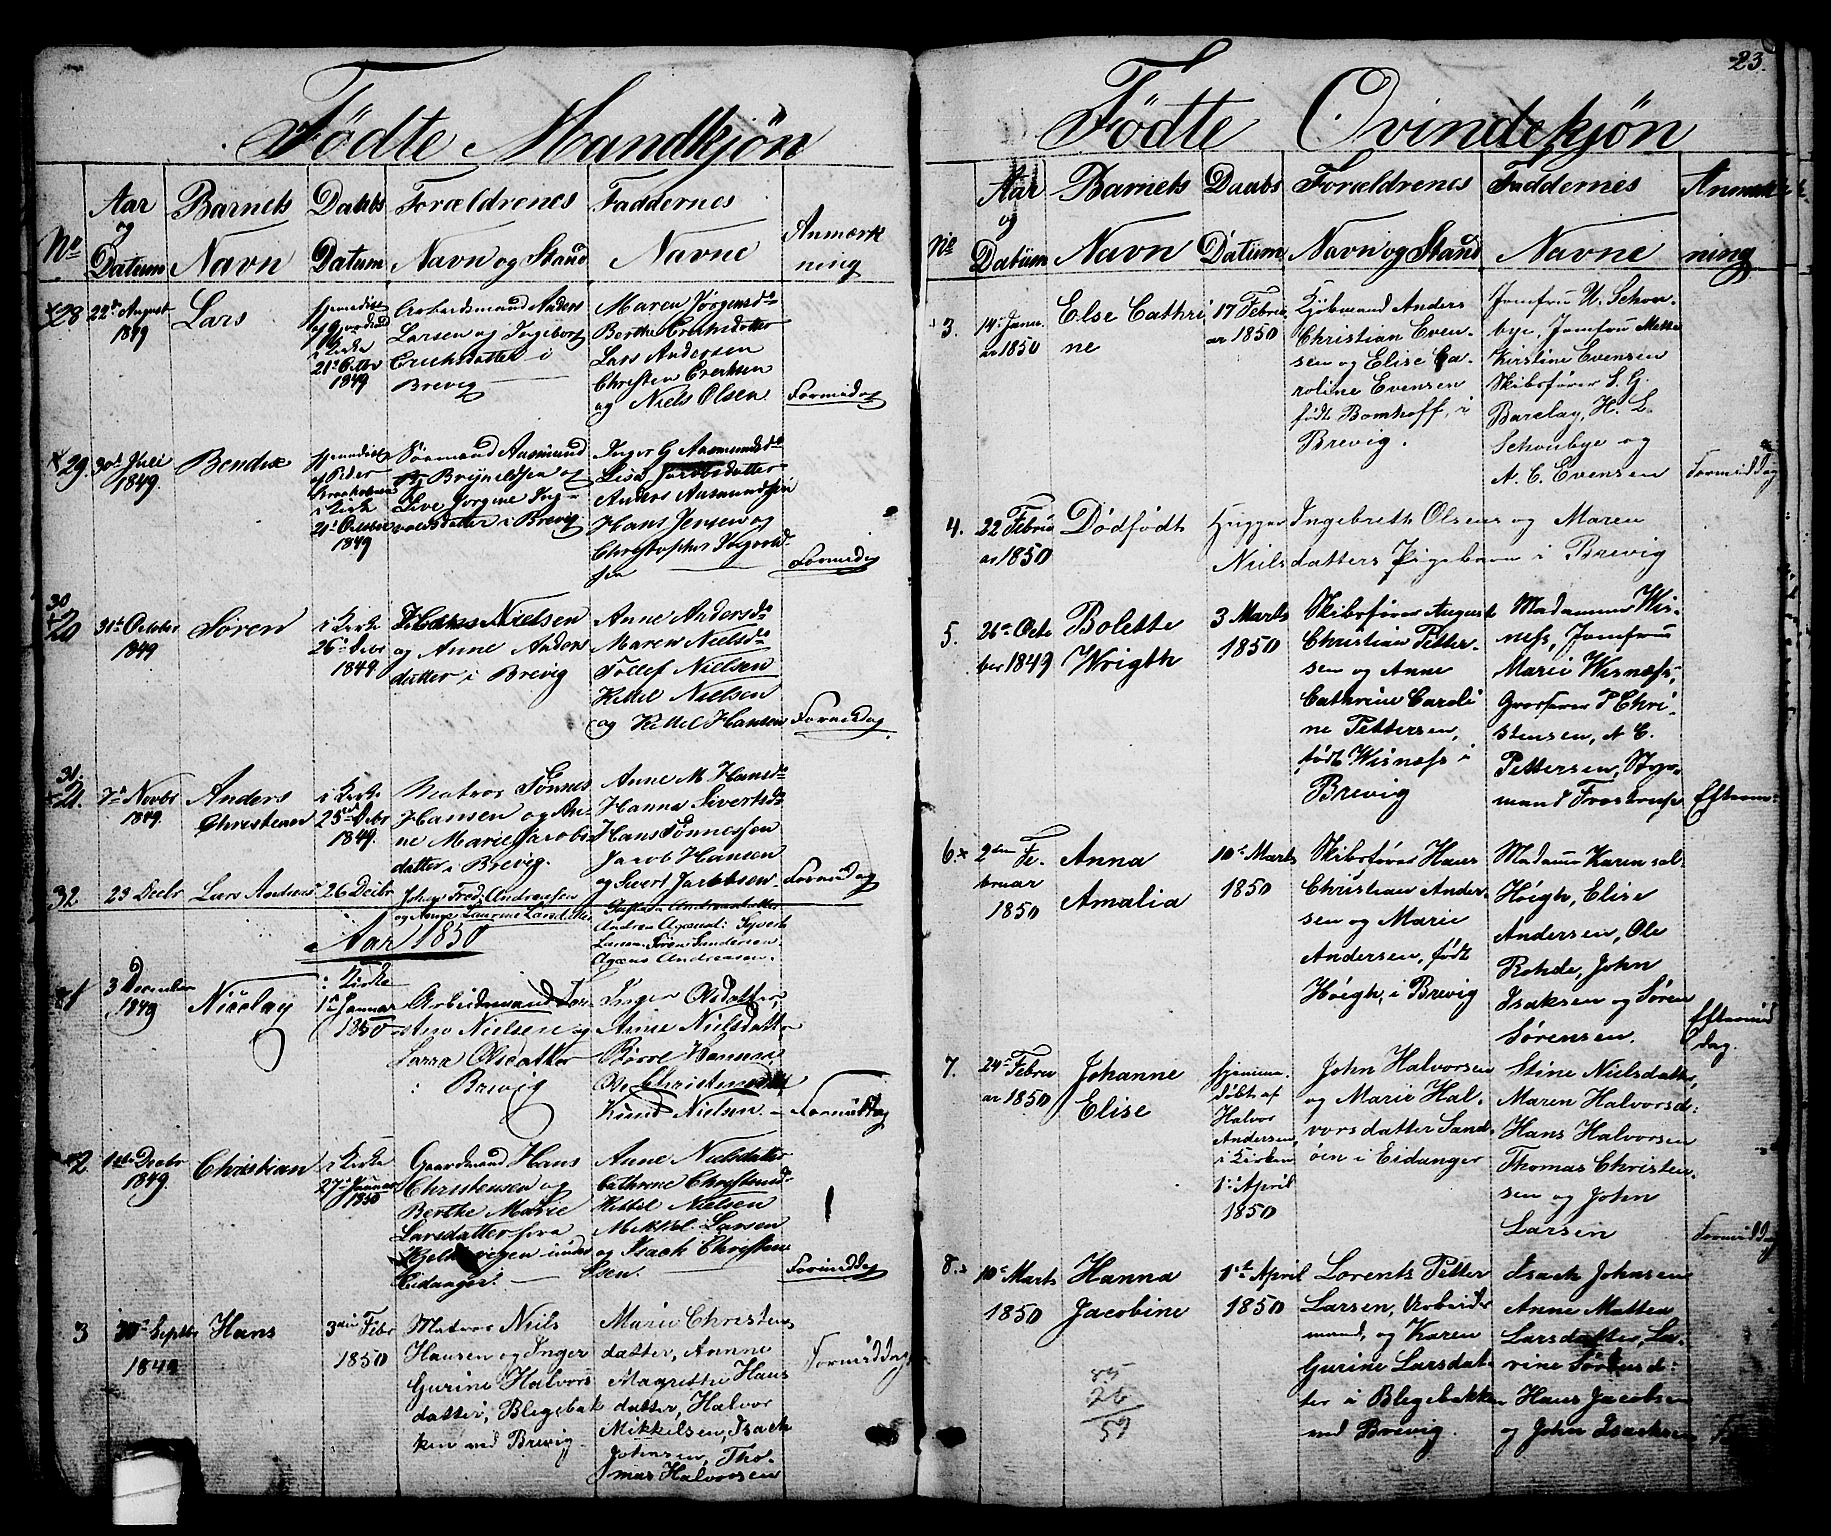 23.
Födte Mandkjön
No
Aar
og
Datum
Barnets
Navn
Daabs
Datum
Forældrenes
Navn og Stand
Faddernes
Navne
Anmærk
ning
28
22de August
1849
Lars
i Kirke
21de Octbr
1849
Arbeidsmand Anders
Larsen og Ingeborg
Ericksdatter i
Brevig
Maren Jörgensdr
Berthe Ericksdatter
Lars Andersen
Christen Ericksen
og Niels Olsen
Formidag
29.
30te Juli
1849.
Bendix
i Kirke
21de October
1849
Sömand Aasmund
Brynildsen og
Live Jorgine
i Brevig.
Inger G Aasmundsdr
Lisa Jacobsdatter
Anders Aasmundsen
Hans Jensen og
Christopher
sen
Formidag
30
20
31te October
1849
Sören
i Kirke
26de Debr
1849.
Hans Nielsen
og Anne Anders
datter i Brevig
Anne Andersdr
Maren Nielsdr
Tollef Nielsen
Kittel Nielsen
og Kittel Hansen
Formidag
31.
21.
7de Novbr
1849.
Anders
Christian
i Kirke
25de Debr
1849.
Matros Tönnes
Hansen og An
ne Marie Jacobs
datter i Brevig.
Anne M Hansdr
Hanna Sivertsdr
Hans Tönnessen
Jacob Hansen
og Sivert Jacobsen
Formidag
32
23 Decbr
Lars Andreas
26 Decbr
Johan Fred. Andreassen
og Laurine
Andreasdatter
Andrea
Larsen Sören Andersen
Andreasen.
Aar 1850
1
3 December
1849
Nicolay
i Kirke
1ste Januar
1850
Arbeidsmand
Nielsen og
Sara Olsdatter
i Brevig
Inger Olsdatter
Anne Nielsdatter
Börre Hansen
Ole Christensen
Knud Nielsen
Formiddag
2
1ste Decbr
1849.
Christian
i Kirke
27de Januar
1850
Gaardmand Hans
Christensen og
Berthe Marie
Larsdatter fra
under
Eidanger.
Anne Nielsdatter
Cathrine Christensd.
Kittel Nielsen
Mikkel Larsen
og Isach Christen
sen.
Formiddag
3
30te Septbr
1849
Hans
3die Febr
1850
Matros Niels
Hansen og Inger
Gurine Halvors
datter, Blegebak
ken ved Brevig.
Marie Christens
datter, Annne
Magrette Hans
datter, Halvor
Mikkelsen, Isack
Johnsen, Tho-
mas Halvorsen
Formiddag
Födte Qvindekjön
No
Aar
og
Datum
Barnets
Navn
Daabs
Datum
Forældrenes
Navn og Stand
Faddernes
Navne
Anmærk
ning
3.
14de Janu
ar 1850
Else Cathri
ne
17 Febru
ar 1850
Kjöbmand Anders
Christian Even-
sen og Elise Ca-
roline Evensen
födt Bomhoff, i
Brevig.
Jomfru U. Schou-
bye, Jomfru Mette
Kirstine Evensen
Skibsförer S. G.
Barclay, H. L.
Schoubye og
A. C. Evensen
Formiddag
4.
22 Febru
ar 1850
Dödfödt
Hugger Ingebreth Olsens og Maren
Nielsdatters Pigebarn i Brevig
5.
26de Octo
ber 1849
Bolette
Wrigth
3 Marts
1850
Skibsförer August
Christian Petter-
sen og Anne
Cathrine Caroli
ne Pettersen,
födt Wisnæss i
Brevig
Madamme Wis-
næss, Jomfru
Marie Wisnæss,
Grosserer P Chri-
stensen, A C.
Pettersen, Styr-
mand Frostrup
Eftrm:
6.
2den Fe-
bruar
1850
Anna
Amalia
10de Marts
1850
Skibsförer Hans
Christian Ander-
sen og Marie
Andersen, födt
Höegh, i Brevig
Madam Karen sal.
Höegh, Elise
Andersen, Ole
Rohde, John
Isaksen og Sören
Sörensen.
Eftermid
dag.
7.
24de Febru
ar 1850
Johanne
Elise
hjemme-
döbt af
Halvor
Andersen,
i Kirken
1ste April
1850
John Halvorsen
og Marie Hal-
vorsdatter Sand-
öen i Eidanger
Stine Nielsdatter,
Maren Halvorsd:
Hans Halvorsen
Thomas Christen-
sen og John
Larsen
Formiddag
8.
10de Marts
1850
Hanna
Jacobine
1ste April
1850
Lorents Petter
Larsen, Arbeider
mand, og Karen
Gurine Larsdat-
ter i Blegebakken
ved Brevig.
Isach Johnsen
Anne Mattea
Larsdatter, La-
vine
Hans Jacobsen
og John Isachsen
85
26
59